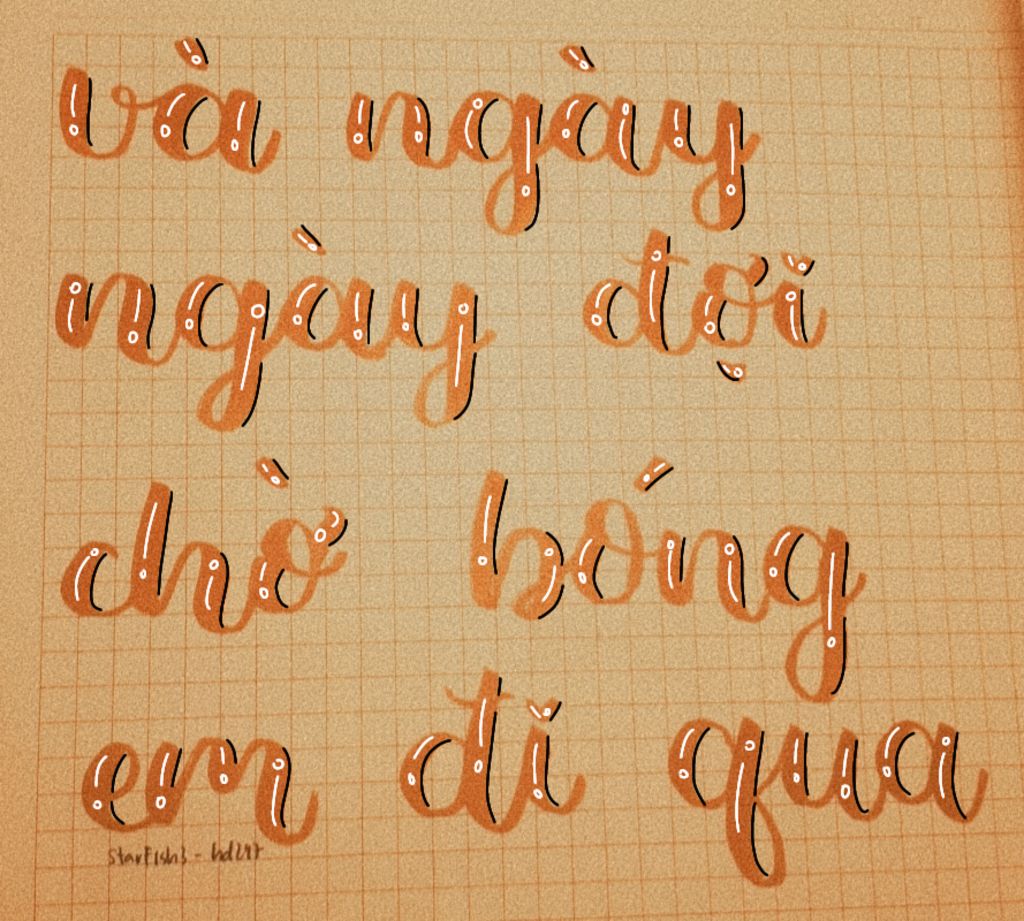 và ngày
ngày đợi
chờ bóng
em đi qua